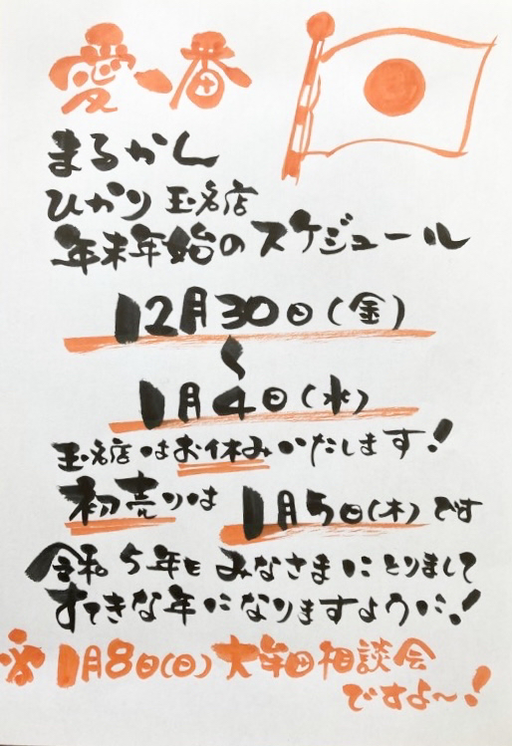 愛一番
まるかん
ひかり 玉名店
年末年始のスケジュール
12月30日(金)
〜
1月4日(水)
玉名店はお休みいたします!
初売りは 1月5日(木)です
令和5年もみなさまにとりまして
すてきな年になりますように!
※1月8日(日)大牟田相談会
ですよ〜!